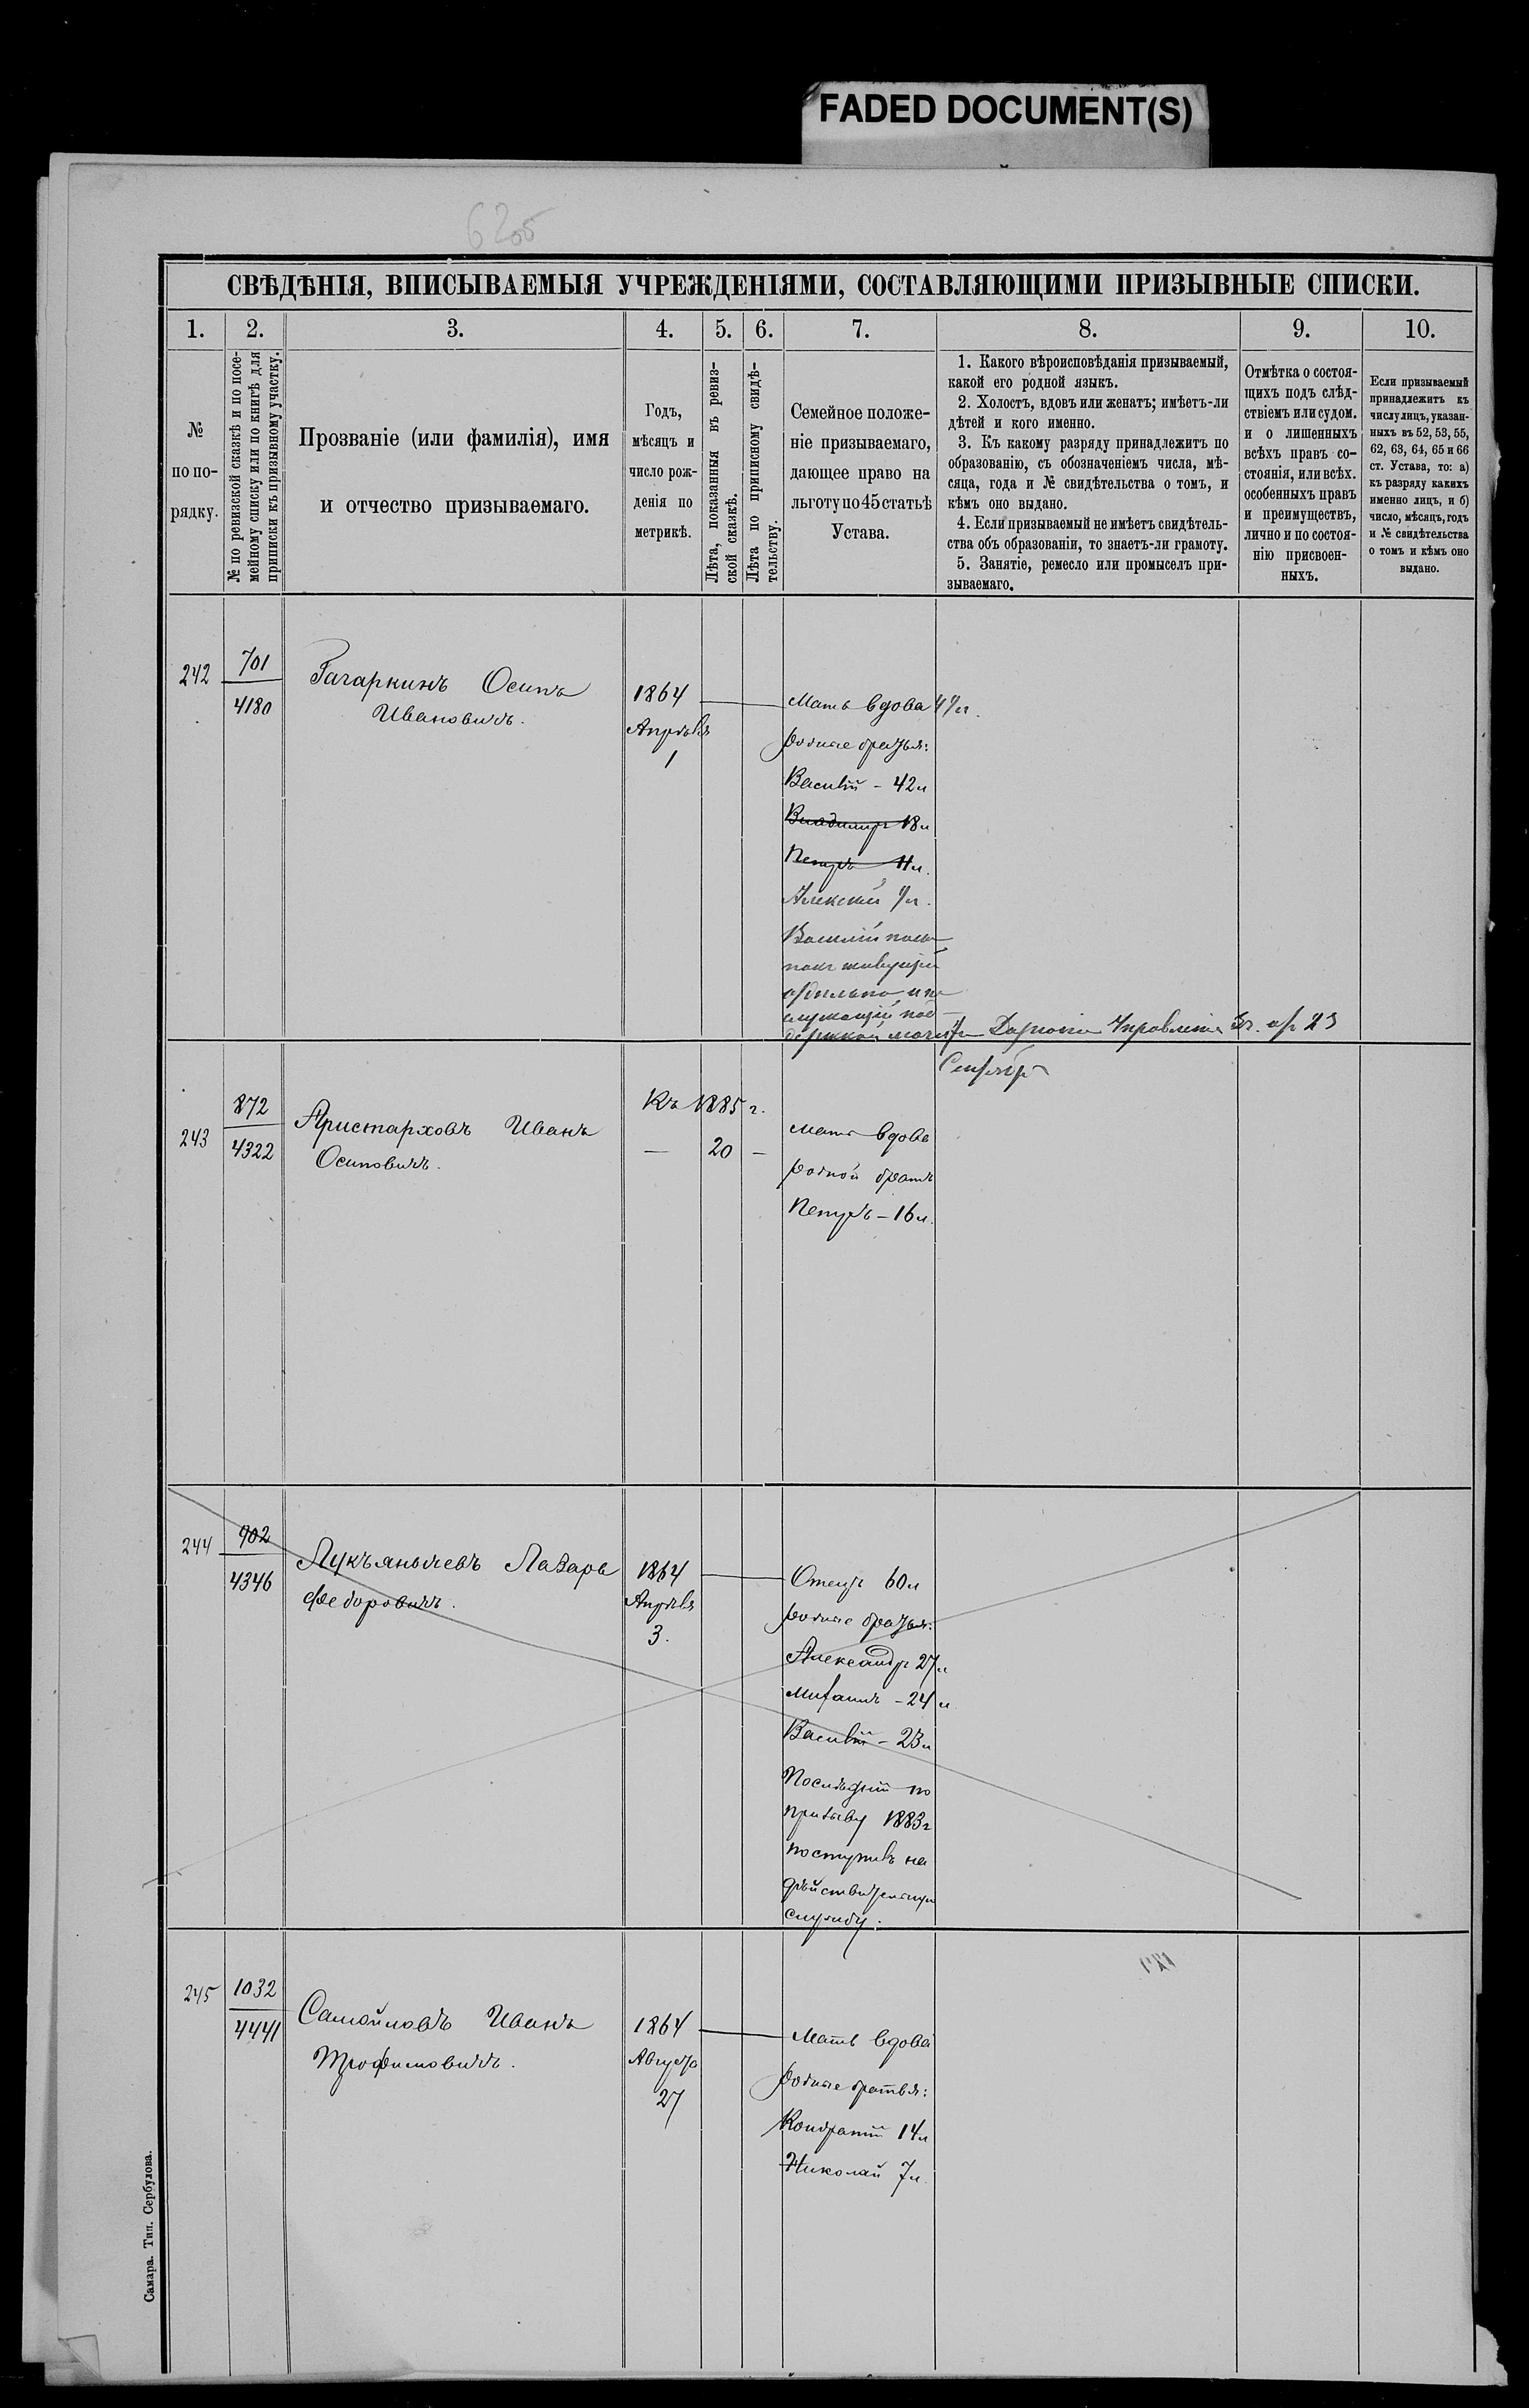 FADED DOCUMENT(S)
СВѢДѢНІЯ, ВПИСЫВАЕМЫЯ УЧРЕЖДЕНІЯМИ, СОСТАВЛЯЮЩИМИ ПРИЗЫВНЫЕ СПИСКИ.
1. 2. 3. 4. 5. 6. 7. 8. 9. 10.
№
по по-
рядку.
№ по ревизской сказкѣ и по посе-
мейному списку или по книгѣ для
приписки къ призывному участку.
Прозваніе (или фамилія), имя
и отчество призываемаго.
Годъ,
мѣсяцъ и
число рож-
денія по
метрикѣ.
Лѣта, показанныя въ ревиз-
ской сказкѣ.
Лѣта по приписному свидѣ-
тельству.
Семейное положе-
ніе призываемаго,
дающее право на
льготу по 45 статьѣ
Устава.
1. Какого вѣроисповѣданія призываемый,
какой его родной языкъ.
2. Холостъ, вдовъ или женатъ; имѣетъ-ли
дѣтей и кого именно.
3. Къ какому разряду принадлежитъ по
образованію, съ обозначеніемъ числа, мѣ-
сяца, года и № свидѣтельства о томъ, и
кѣмъ оно выдано.
4. Если призываемый не имѣетъ свидѣтель-
ства объ образованіи, то знаетъ-ли грамоту.
5. Занятіе, ремесло или промыселъ при-
зываемаго.
Отмѣтка о состоя-
щихъ подъ слѣд-
ствіемъ или судом.
и о лишенныхъ
всѣхъ правъ со-
стоянія, или всѣх.
особенныхъ правъ
и преимуществъ,
лично и по состоя-
нію присвоен-
ныхъ.
Если призываемый
принадлежитъ къ
числу лицъ, указан-
ныхъ въ 52, 53, 55,
62, 63, 64, 65 и 66
ст. Устава, то: а)
къ разряду какихъ
именно лицъ, и б)
число, мѣсяцъ, годъ
и № свидѣтельства
о томъ и кѣмъ оно
выдано.
242
701
4180
Гагаркинъ Осипъ
Ивановичъ.
1864
Апрѣля
1
Мать вдова
родные братья:
Василій - 42 л
Владимиръ 18 л
Петръ 11 л.
Алексѣй
Василій
живущій
243
872
4322
Аристарховъ Иванъ
Осиповичъ.
Къ 1885 г.
— 20 —
Мать вдова
родной братъ
Петръ - 16 л.
244
902
4346
Лукъянычевъ Лазарь
Федоровичъ.
1864
Апрѣля
3.
Отецъ 60 л
родные братья:
Александръ 27 л
Михаилъ - 24 л
Василій - 23 л
Послѣдній по
призыву 1883 г
поступилъ на
дѣйствительную
службу.
245
1032
4441
Самойловъ Иванъ
Трофимовичъ.
1864
Августа
27
Мать вдова
родные братья:
Кондратій 14 л
Николай 7 л.
Самара. Тип. Сербулова.